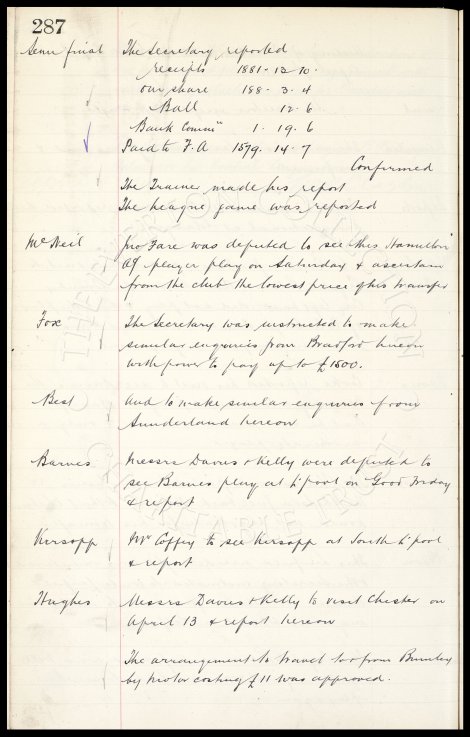 287
Semi final The Secretary reported
receipts 1881 - 13 - 10 -
our share 188 - 3 - 4
Ball 12 - 6
Bank Commn 1 - 19 - 6
Paid to F.A 1579 - 14 - 7
Confirmed
The Trainer made his report
The league game was reported
McNeil Mr Fare was deputed to see this Hamilton
player play on Saturday & ascertain
from the club the lowest price of his transfer
Fox The Secretary was instructed to make
similar enquiries from Bradford hereon
with power to pay up to £1500.
Best and to make similar enquiries from
Sunderland hereon
Barnes Messrs Davies & Kelly were deputed to
see Barnes play at L'pool on Good Friday
& report
Kirsopp Mr Coffey to see Kirsopp at South L'pool
& report
Hughes Messrs Davies & Kelly to visit Chester on
April 13 & report hereon
The arrangement to travel to & from Burnley
by motor costing £11 was approved.